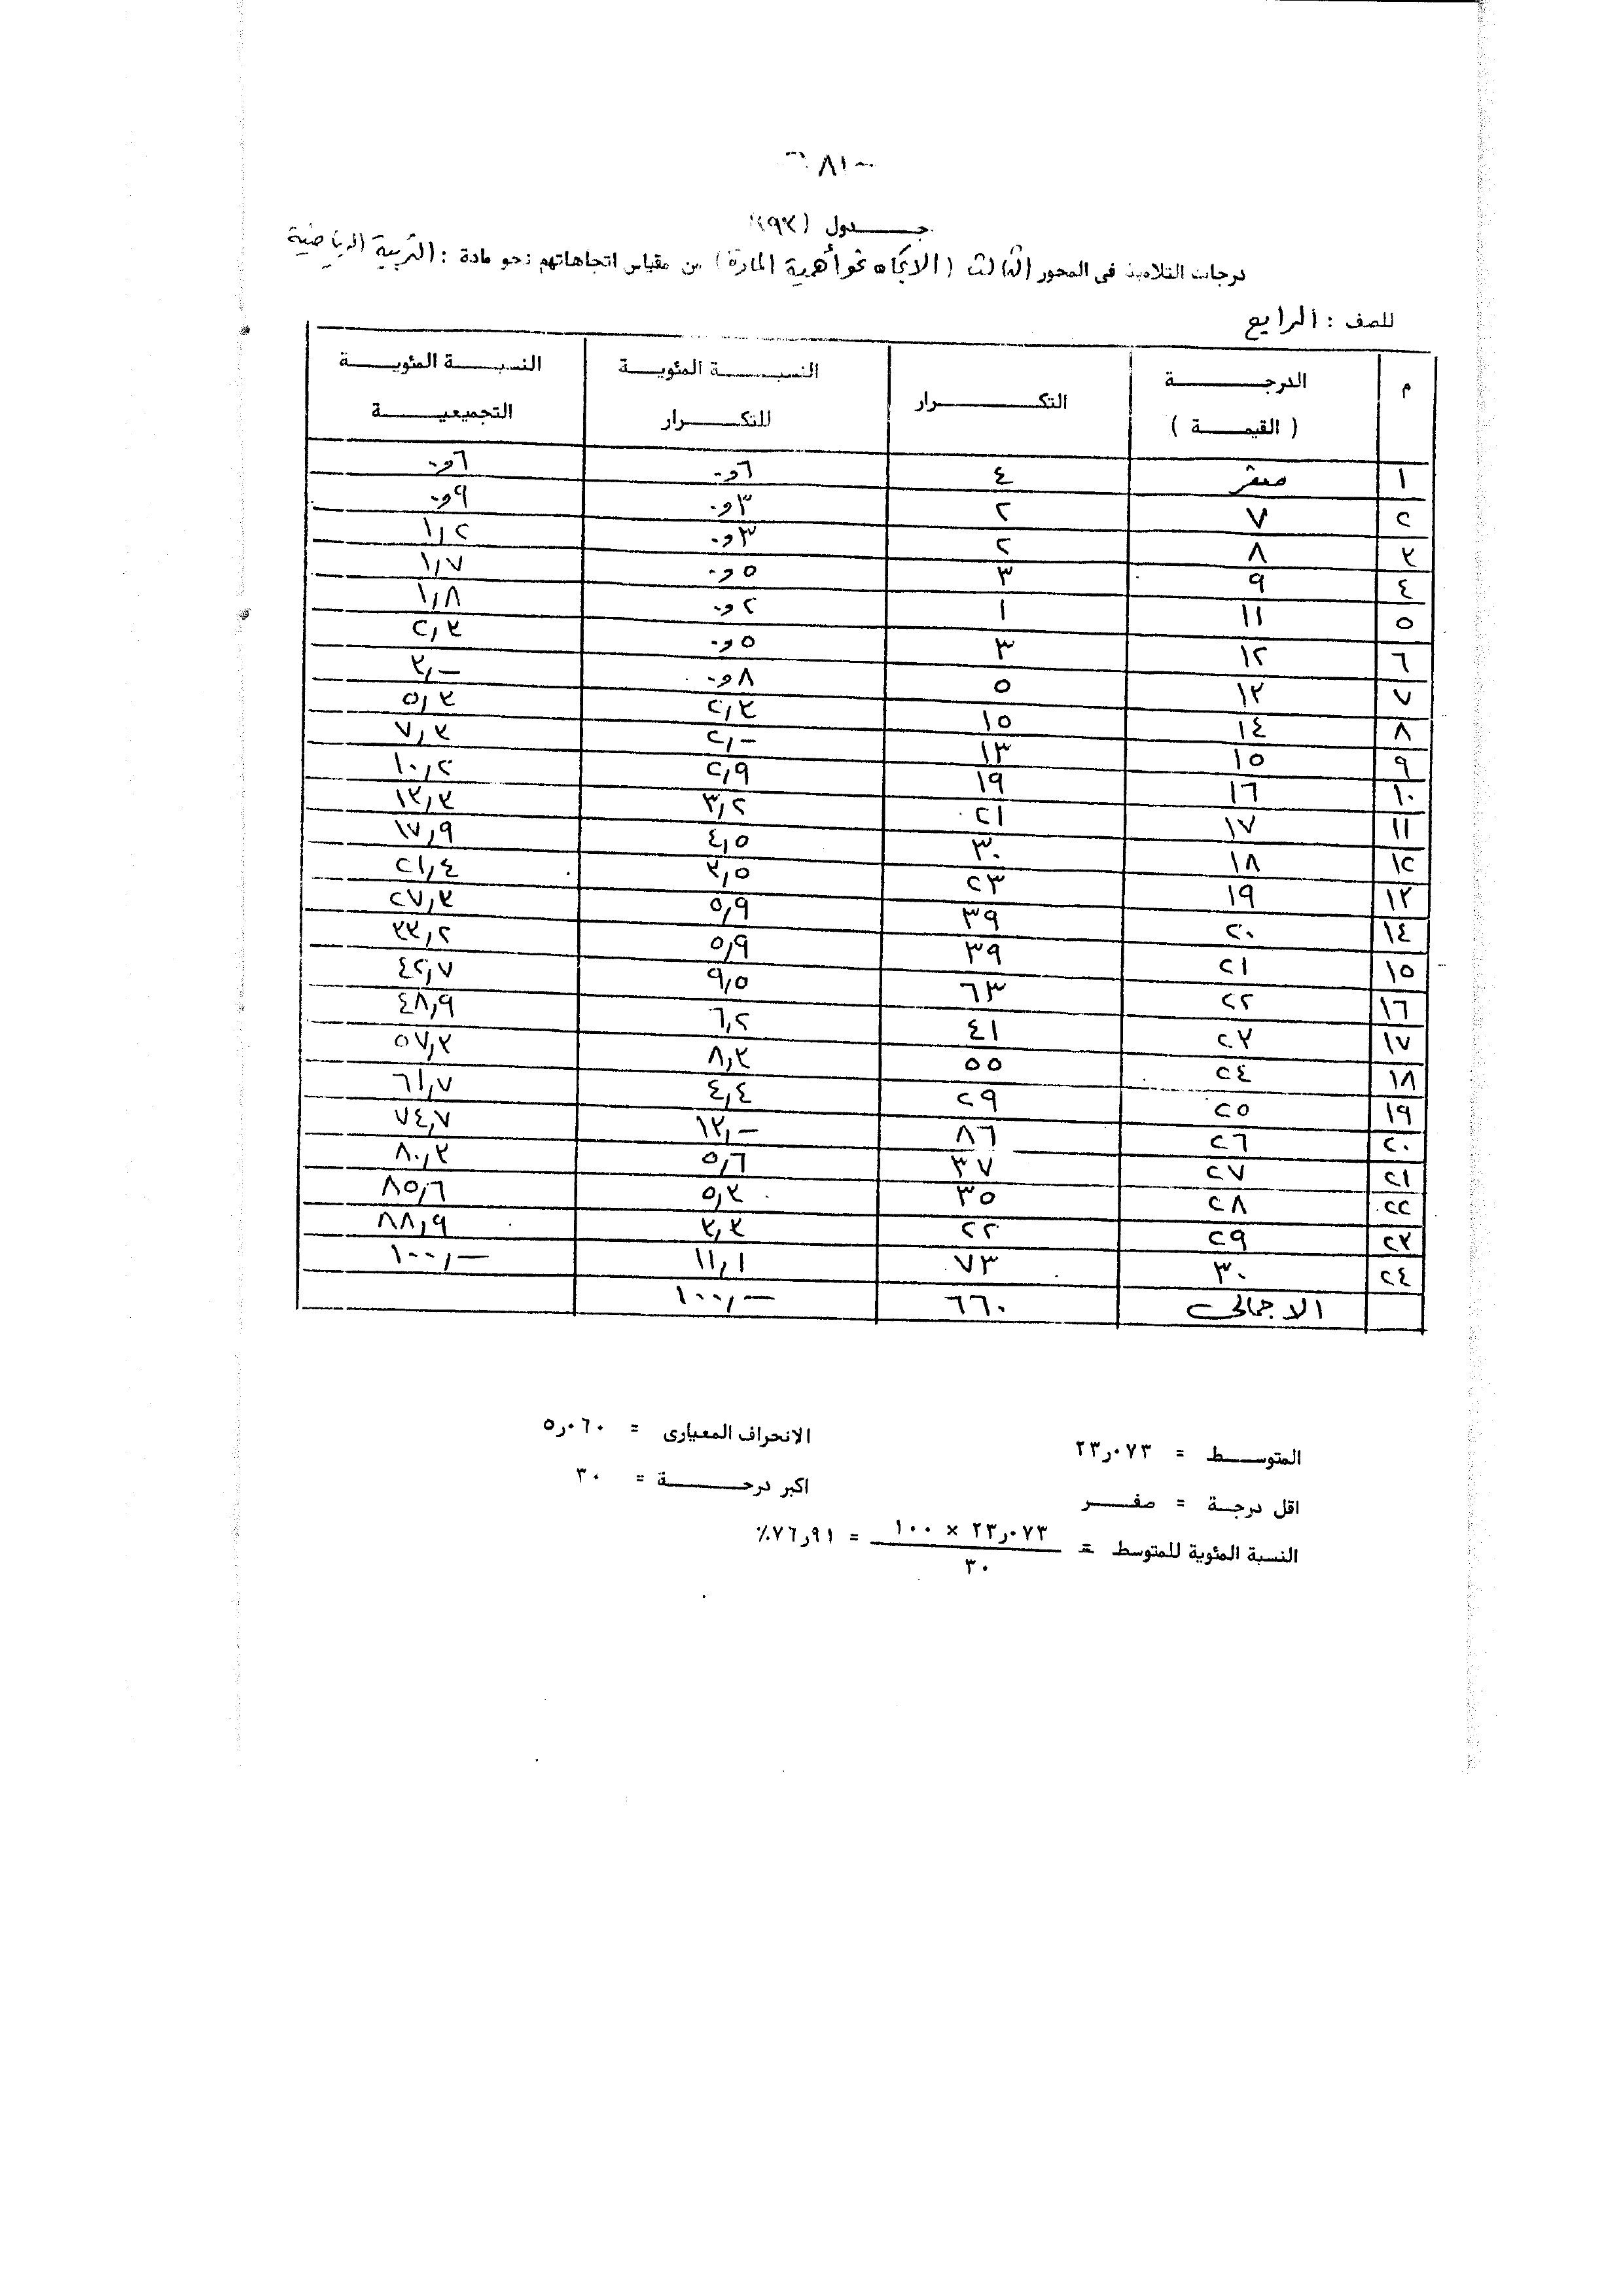 جدول
درجات التلاميذ فى المحور الثالث (الاتجاه نحو أهمية المادة) من مقياس اتجاهاتهم نحو مادة : التربية الرياضية
للصف : الرابع
م الدرجة (القيمة) التكرار النسبة المئوية للتكرار النسبة المئوية التجميعية
١ صفر ٤ ٦و٠ ٦و٠
٢ ٧ ٢ ٣و٠ ٩و٠
٣ ٨ ٢ ٣و٠ ١,٢
٤ ٩ ٣ ٥و٠ ١,٧
٥ ١١ ١ ٢و٠ ١,٨
٦ ١٢ ٣ ٥و٠ ٢,٣
٧ ١٣ ٥ ٨و٠ ٣,-
٨ ١٤ ١٥ ٢,٣ ٥,٣
٩ ١٥ ١٣ ٢,- ٧,٣
١٠ ١٦ ١٩ ٢,٩ ١٠,٢
١١ ١٧ ٢١ ٣,٢ ١٣,٣
١٢ ١٨ ٣٠ ٤,٥ ١٧,٩
١٣ ١٩ ٢٣ ٣,٥ ٢١,٤
١٤ ٢٠ ٣٩ ٥,٩ ٢٧,٣
١٥ ٢١ ٣٩ ٥,٩ ٣٣,٢
١٦ ٢٢ ٦٣ ٩,٥ ٤٢,٧
١٧ ٢٣ ٤١ ٦,٢ ٤٨,٩
١٨ ٢٤ ٥٥ ٨,٣ ٥٧,٣
١٩ ٢٥ ٢٩ ٤,٤ ٦١,٧
٢٠ ٢٦ ٨٦ ١٣,- ٧٤,٧
٢١ ٢٧ ٣٧ ٥,٦ ٨٠,٣
٢٢ ٢٨ ٣٥ ٥,٣ ٨٥,٦
٢٣ ٢٩ ٢٢ ٣,٣ ٨٨,٩
٢٤ ٣٠ ٧٣ ١١,١ ١٠٠,-
الاجمالى ٦٦٠ ١٠٠,-
المتوسط = ٠٧٣ر٢٣ الانحراف المعيارى = ٠٦٠ر٥
اقل درجة = صفر اكبر درجة = ٣٠
النسبة المئوية للمتوسط = ٠٧٣ر٢٣ × ١٠٠ = ٩١ر٧٦٪
٣٠